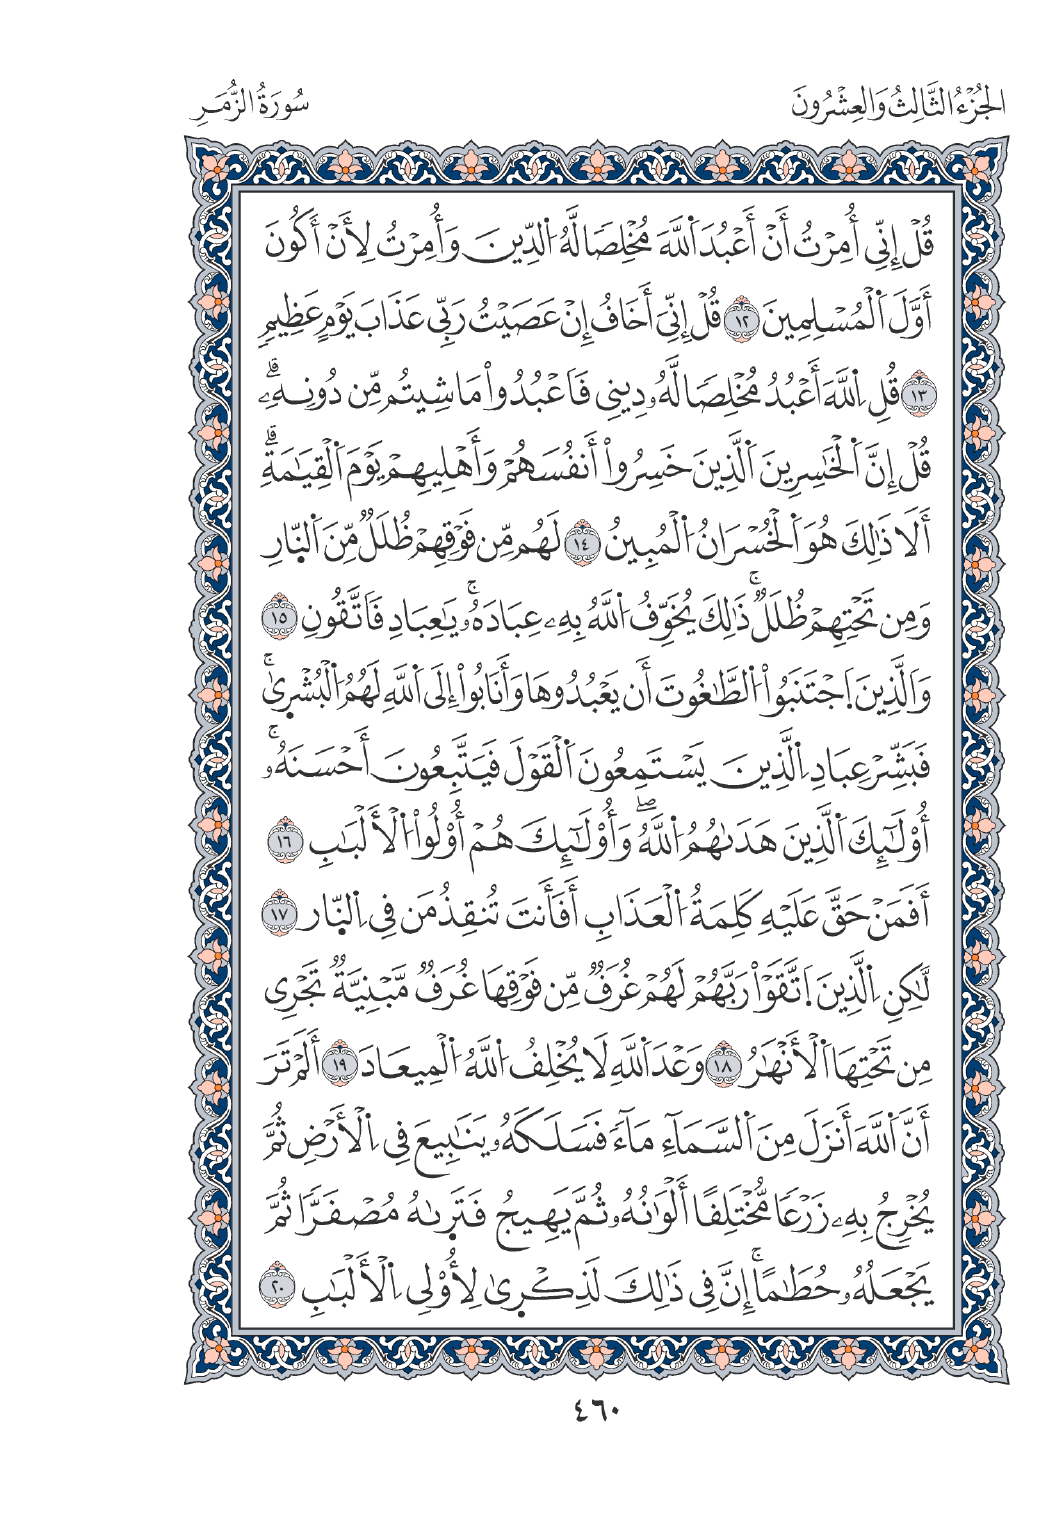 الجُزْءُ الثَّالِثُ وَالعِشْرُونَ
سُورَةُ الزُّمَرِ
قُلْ إِنِّي أُمِرْتُ أَنْ أَعْبُدَ اَ۬للَّهَ مُخْلِصاٗ لَّهُ اُ۬لدِّينَ وَأُمِرْتُ لِأَنْ أَكُونَ
أَوَّلَ اَ۬لْمُسْلِمِينَ ١٢ قُلْ إِنِّيَ أَخَافُ إِنْ عَصَيْتُ رَبِّي عَذَابَ يَوْمٍ عَظِيمٖ
١٣ قُلِ اِ۬للَّهَ أَعْبُدُ مُخْلِصاٗ لَّهُۥ دِينِي فَاَعْبُدُواْ مَا شِيتُم مِّن دُونِهِۦۗ
قُلْ إِنَّ اَ۬لْخَٰسِرِينَ اَ۬لَّذِينَ خَسِرُواْ أَنفُسَهُمْ وَأَهْلِيهِمْ يَوْمَ اَ۬لْقِيَٰمَةِۗ
أَلَا ذَٰلِكَ هُوَ اَ۬لْخُسْرَانُ اُ۬لْمُبِينُ ١٤ لَهُم مِّن فَوْقِهِمْ ظُلَلٞ مِّنَ اَ۬لنّ۪ارِ
وَمِن تَحْتِهِمْ ظُلَلٞۚ ذَٰلِكَ يُخَوِّفُ اُ۬للَّهُ بِهِۦ عِبَادَهُۥۚ يَٰعِبَادِ فَاَتَّقُونِ ١٥
وَاَلَّذِينَ اَ۪جْتَنَبُواْ اُ۬لطَّٰغُوتَ أَن يَعْبُدُوهَا وَأَنَابُواْ إِلَى اَ۬للَّهِ لَهُمُ اُ۬لْبُشْر۪ىٰۚ
فَبَشِّرْ عِبَادِ اِ۬لَّذِينَ يَسْتَمِعُونَ اَ۬لْقَوْلَ فَيَتَّبِعُونَ أَحْسَنَهُۥۚ
أُوْلَٰٓئِكَ اَ۬لَّذِينَ هَدَىٰهُمُ اُ۬للَّهُۖ وَأُوْلَٰٓئِكَ هُمْ أُوْلُواْ اُ۬لْأَلْبَٰبِ ١٦
أَفَمَنْ حَقَّ عَلَيْهِ كَلِمَةُ اُ۬لْعَذَابِ أَفَأَنتَ تُنقِذُ مَن فِي اِ۬لنّ۪ارِ ١٧
لَٰكِنِ اِ۬لَّذِينَ اَ۪تَّقَوْاْ رَبَّهُمْ لَهُمْ غُرَفٞ مِّن فَوْقِهَا غُرَفٞ مَّبْنِيَّةٞ تَجْرِي
مِن تَحْتِهَا اَ۬لْأَنْهَٰرُ ١٨ وَعْدَ اَ۬للَّهِ لَا يُخْلِفُ اُ۬للَّهُ اُ۬لْمِيعَادَ ١٩ أَلَمْ تَرَ
أَنَّ اَ۬للَّهَ أَنزَلَ مِنَ اَ۬لسَّمَآءِ مَآءٗ فَسَلَكَهُۥ يَنَٰبِيعَ فِي اِ۬لْأَرْضِ ثُمَّ
يُخْرِجُ بِهِۦ زَرْعاٗ مُّخْتَلِفاً أَلْوَٰنُهُۥ ثُمَّ يَهِيجُ فَتَر۪ىٰهُ مُصْفَرّاٗ ثُمَّ
يَجْعَلُهُۥ حُطَٰماًۚ إِنَّ فِي ذَٰلِكَ لَذِكْر۪ىٰ لِأُوْلِي اِ۬لْأَلْبَٰبِ ٢٠
٤٦٠